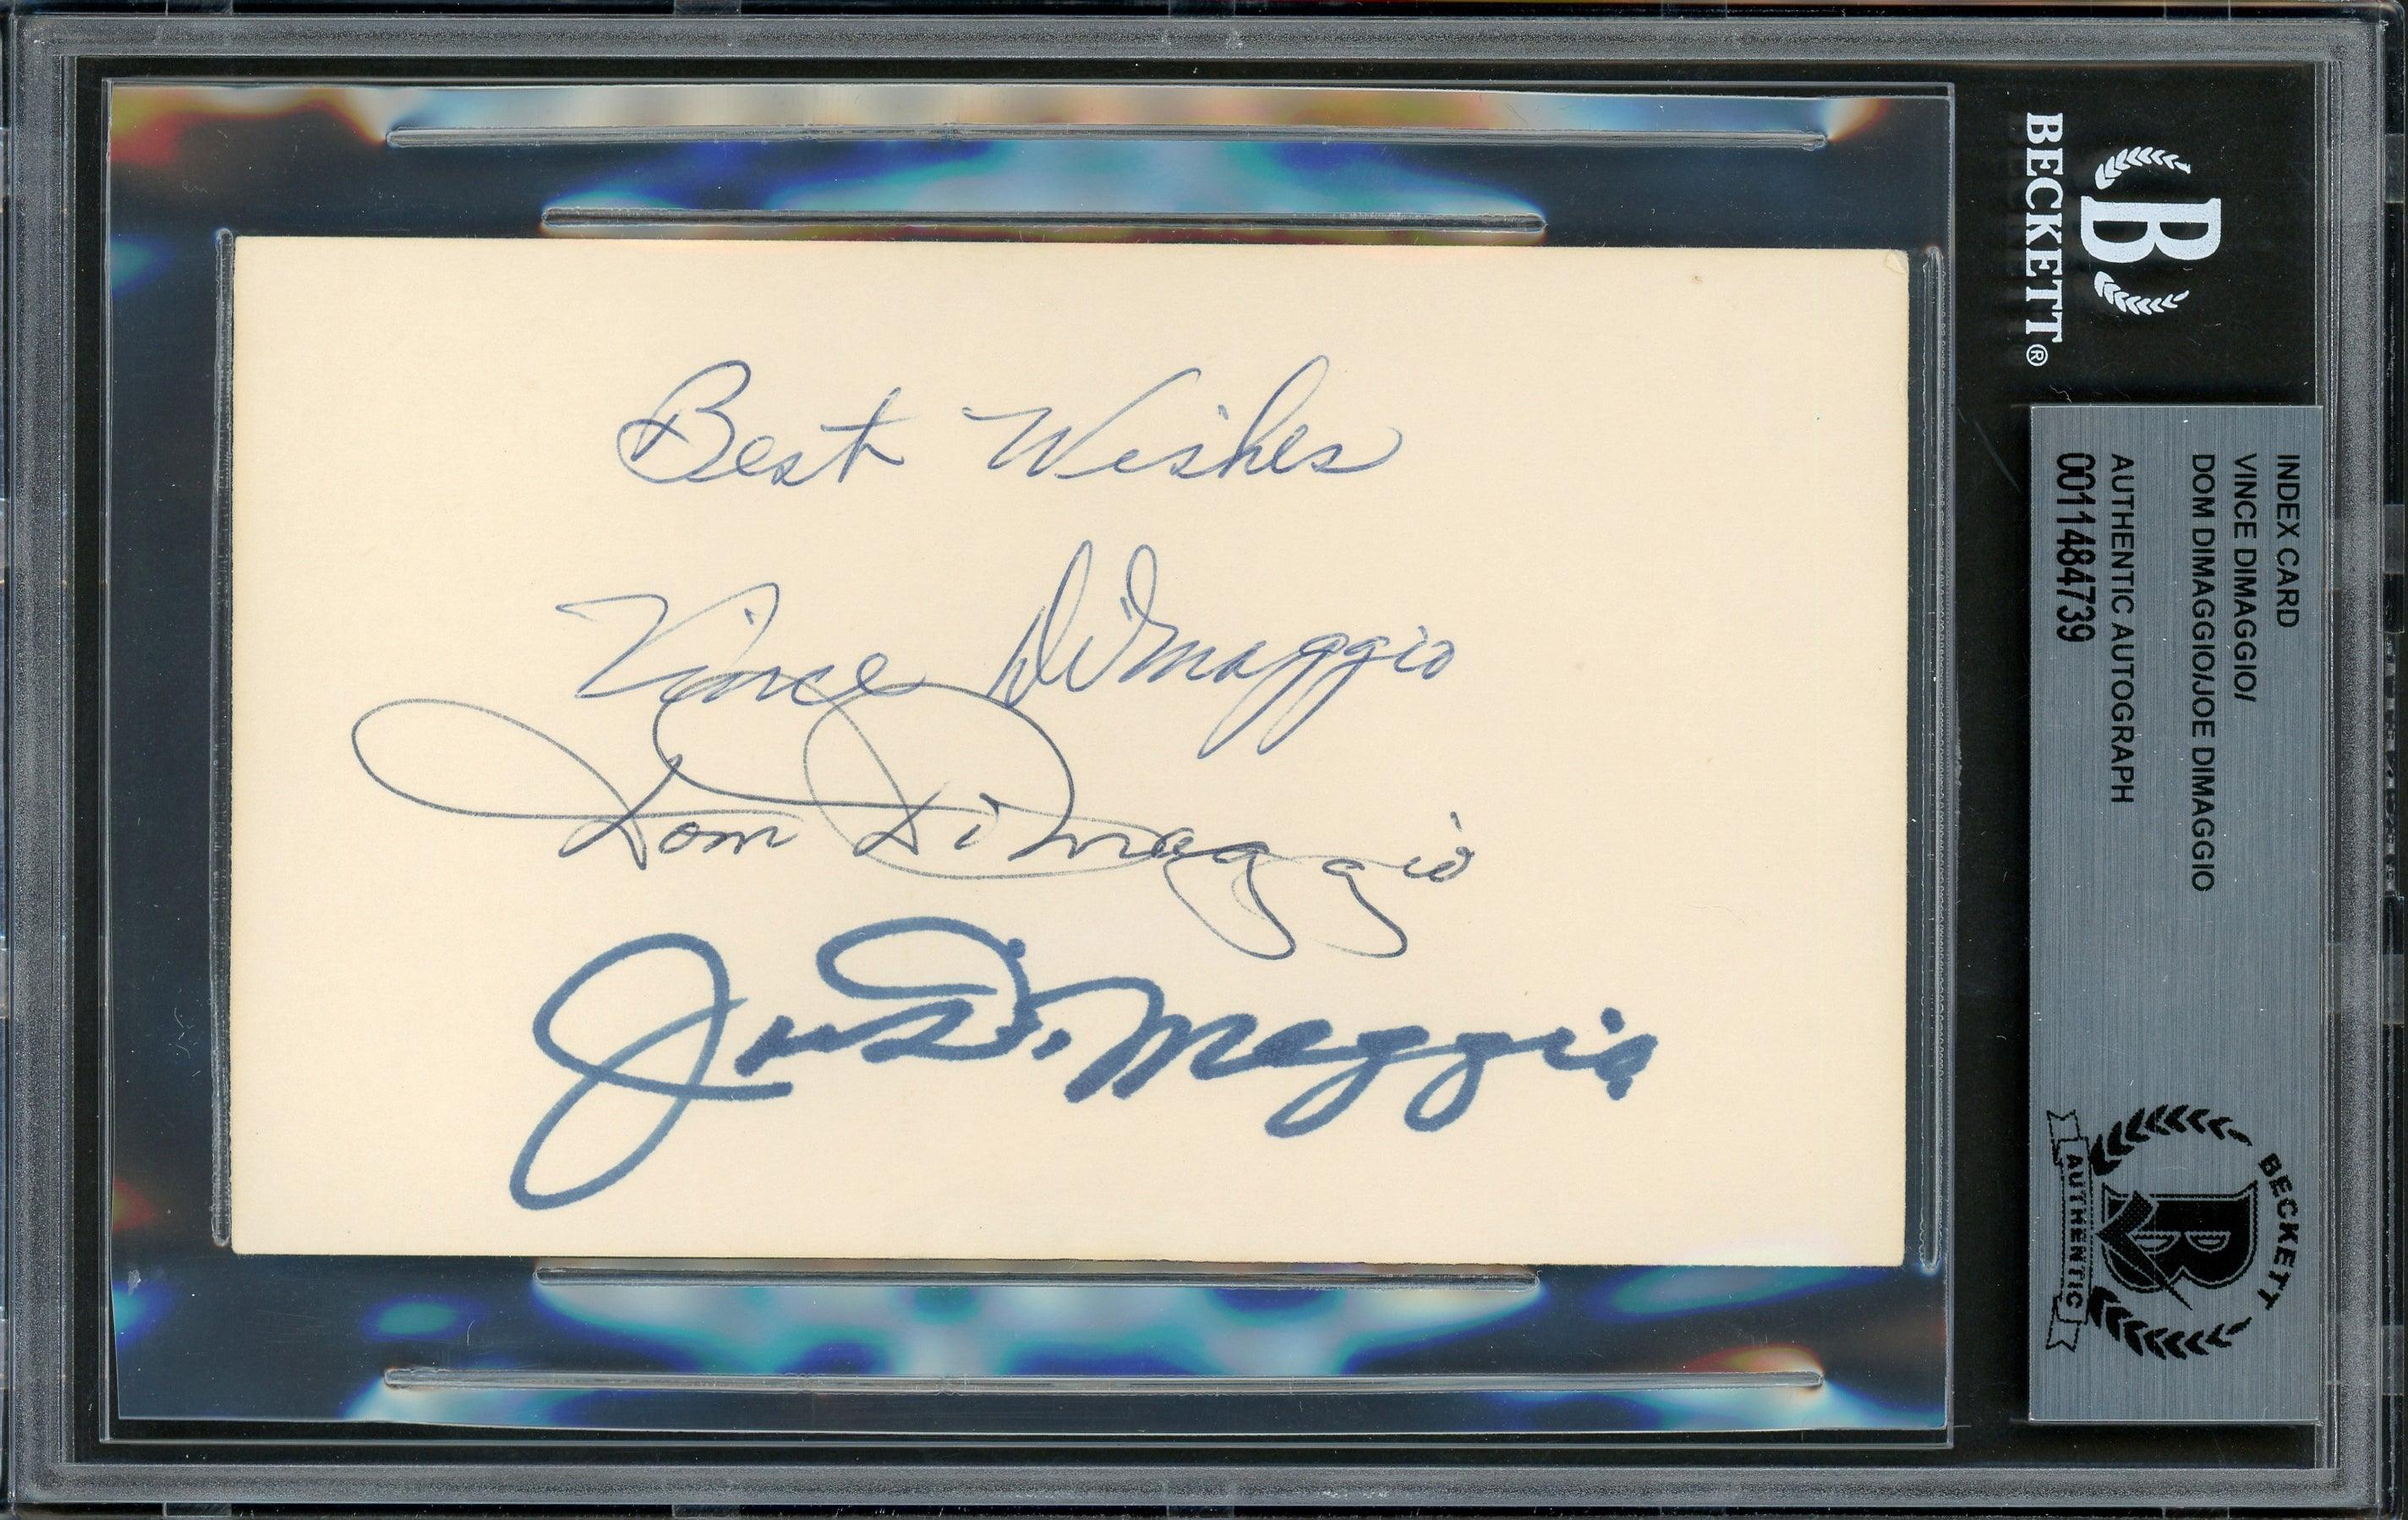 Best Wishes
Vince DiMaggio
Dom DiMaggio
Joe DiMaggio
BECKETT®
B
INDEX CARD
VINCE DIMAGGIO/
DOM DIMAGGIO/JOE DIMAGGIO
AUTHENTIC AUTOGRAPH
0011484739
BECKETT
B
AUTHENTIC